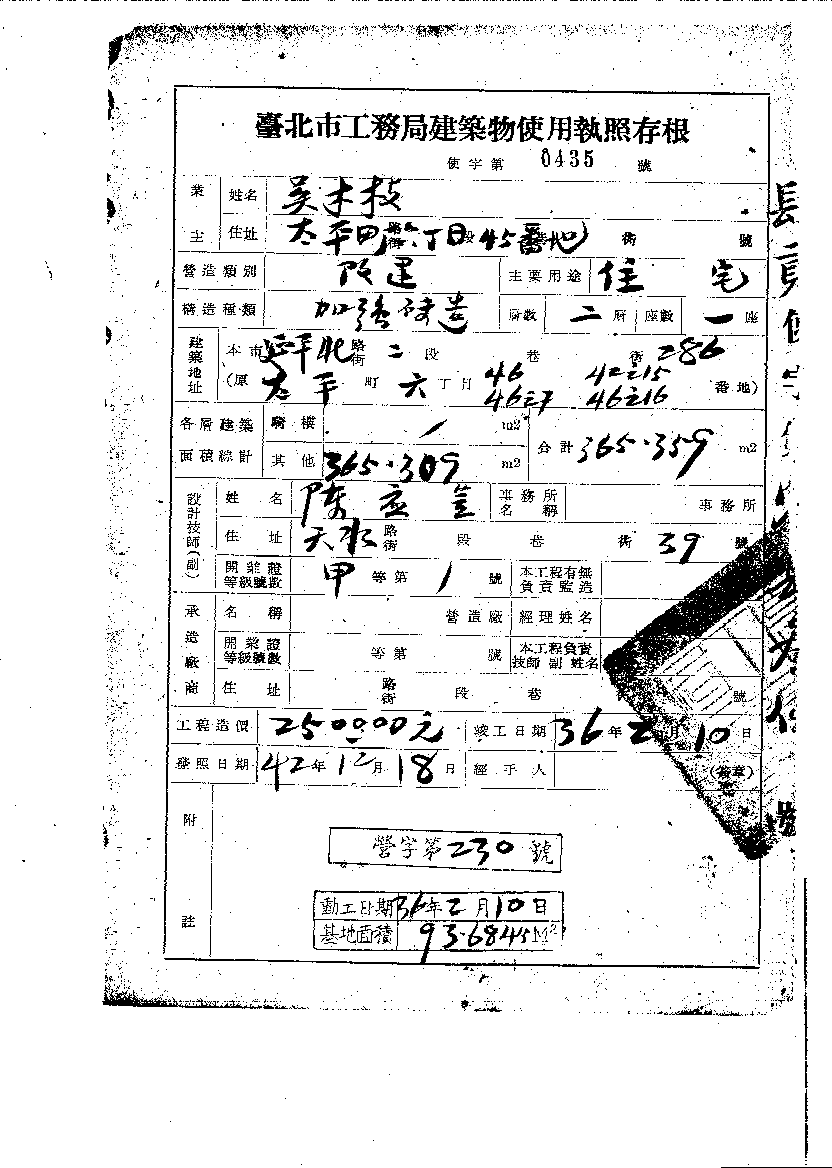 臺北市工務局建築物使用執照存根
使字第 0435 號
業主 姓名 吳木枝
住址 太平町 路街 六丁目 段 45番地 街 號
營造類別 改建 主要用途 住宅
構造種類 加強磚造 層數 二層 座數 一座
建築地址 本市 延平北 路街 二段 巷 街 286
(原 太平町 六丁目 46 42之15 番地)
46之7 46之16
各層建築面積綜計 騎樓 / m2 合計 365.359 m2
其他 365.309 m2
設計技師(副) 姓名 陳 事務所名稱 事務所
住址 天水 路街 段 巷 街 39 號
開業證等級號數 甲 等第 1 號 本工程有無負責監造
承造廠商 名稱 營造廠 經理姓名
開業證等級號數 等第 號 本工程負責技師 副 姓名
住址 路街 段 巷 號
工程造價 250000元 竣工日期 36年2月10日
發照日期 42年12月18日 經手人 (簽章)
附註
營字第230號
動工日期 36年2月10日
基地面積 93.6845M2